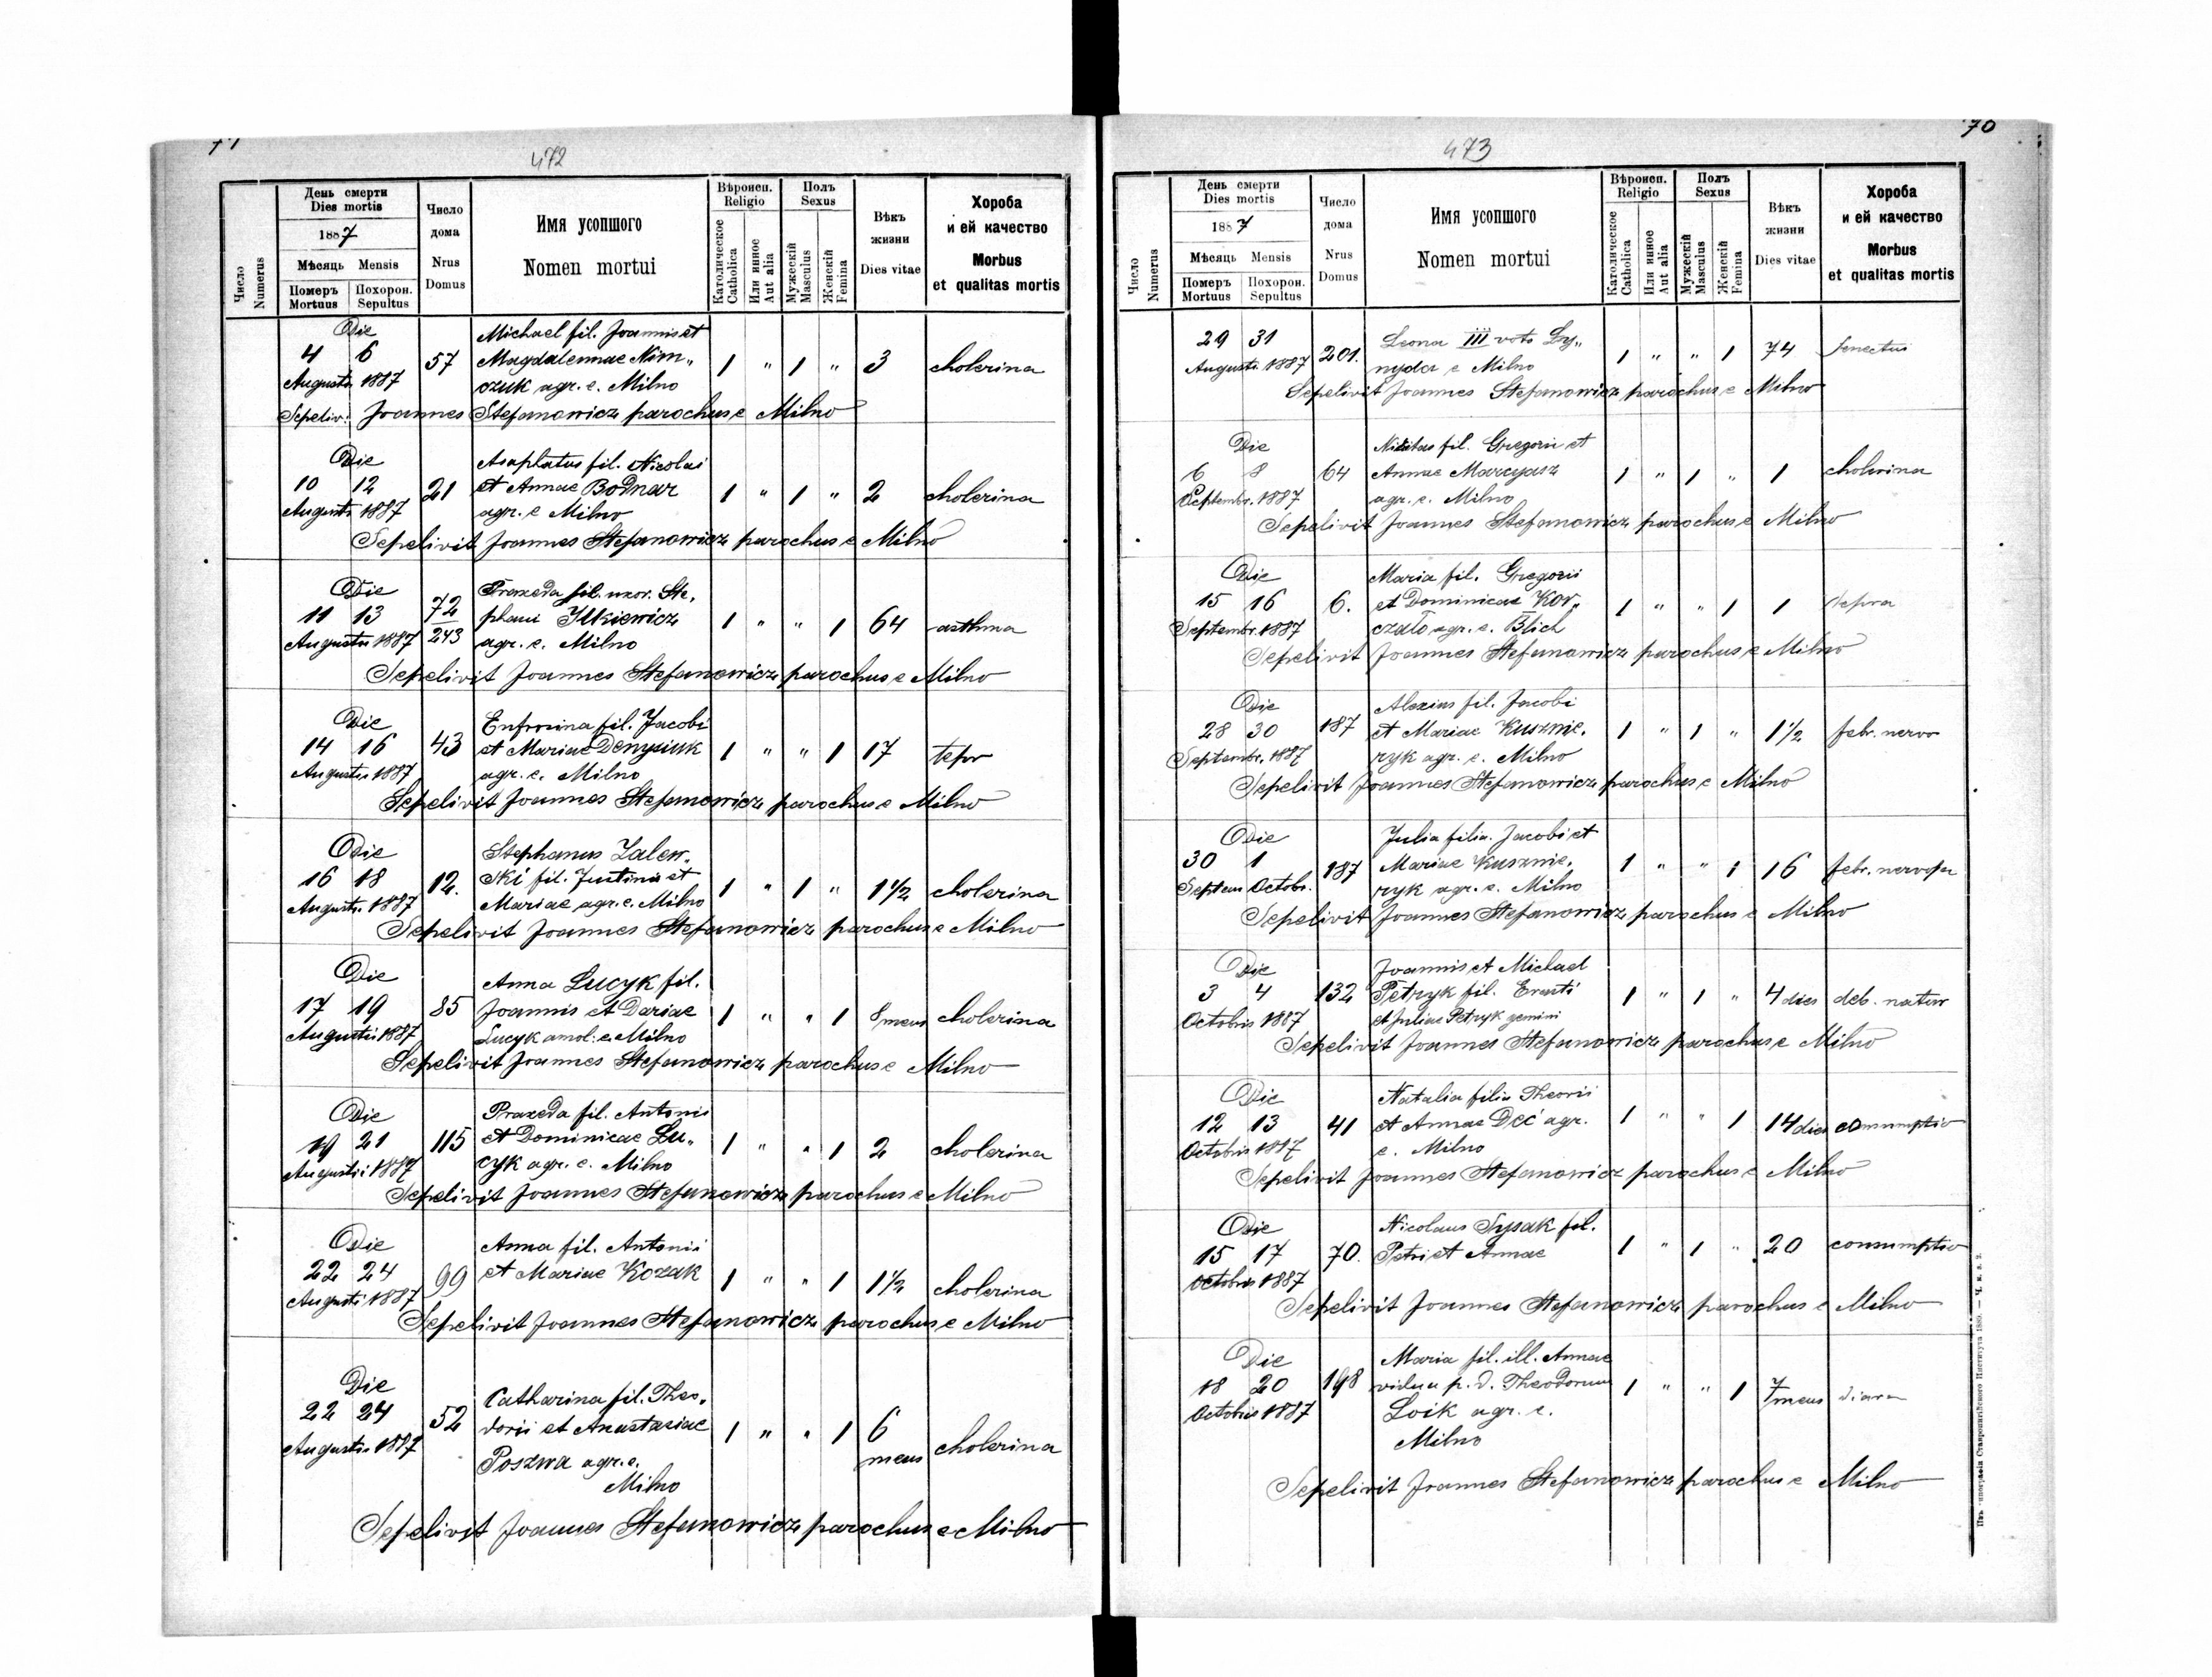 472
День смерти
Dies mortis
1887
Мѣсяць Mensis
Померъ Mortuus
Похорон. Sepultus
Число Numerus
Число дома
Nrus Domus
Имя усопшого
Nomen mortui
Вѣроисп. Religio
Католическое Catholica
Или инное Aut alia
Полъ Sexus
Мужескій Masculus
Женскій Femina
Вѣкъ жизни
Dies vitae
Хороба и ей качество
Morbus et qualitas mortis
Die
Michael fil. Joannis et
4 6 57 Magdalennae Nim„ 1 " 1 " 3 cholerina
Augusti 1887 czuk agr. e. Milno
Sepeliv: Joannes Stefanowicz parochus e Milno
Die
Asaphatus fil. Nicolai
10 12 21 et Annae Bodnar 1 " 1 " 2 cholerina
Augusti 1887 agr. e Milno
Sepelivit Joannes Stefanowicz parochus e Milno
Die
Praxeda fil. uxor. Ste„
11 13 72/243 phani Ilkiewicz 1 " " 1 64 asthma
Augusti 1887 agr. e. Milno
Sepelivit Joannes Stefanowicz parochus e Milno
Die
Eufrozina fil. Jacobi
14 16 43 et Mariae Denysiuk 1 " " 1 17 tepor
Augusti 1887 agr. e. Milno
Sepelivit Joannes Stefanowicz parochus e Milno
Die
Stephanus Zalew„
16 18 12. ski fil. Justini et 1 " 1 " 1½ cholerina
Augusti 1887 Mariae agr. e. Milno
Sepelivit Joannes Stefanowicz parochus e Milno
Die
Anna Lucyk fil.
17 19 85 Joannis et Dariae 1 " " 1 8 mens cholerina
Augusti 1887 Lucyk amol: e Milno
Sepelivit Joannes Stefanowicz parochus e Milno
Die
Praxeda fil. Antonii
19 21 115 et Dominicae Lu„ 1 " " 1 2 cholerina
Augusti 1887 cyk agr. e. Milno
Sepelivit Joannes Stefanowicz parochus e Milno
Die
Anna fil. Antonii
22 24 99 et Mariae Kozak 1 " " 1 1½ cholerina
Augusti 1887
Sepelivit Joannes Stefanowicz parochus e Milno
Die
Catharina fil. Theo„
22 24 52 dorii et Anastasiae 1 " " 1 6 mens cholerina
Augusti 1887 Poszwa agr. e.
Milno
Sepelivit Joannes Stefanowicz parochus e Milno
70
473
День смерти
Dies mortis
1887
Мѣсяць Mensis
Померъ Mortuus
Похорон. Sepultus
Число Numerus
Число дома
Nrus Domus
Имя усопшого
Nomen mortui
Вѣроисп. Religio
Католическое Catholica
Или инное Aut alia
Полъ Sexus
Мужескій Masculus
Женскій Femina
Вѣкъ жизни
Dies vitae
Хороба и ей качество
Morbus et qualitas mortis
29 31 201. Leona III voto Ly„ 1 " " 1 74 senectus
Augusti 1887 nyda e Milno
Sepelivit Joannes Stefanowicz parochus e Milno
Die
Nikitas fil. Gregorii et
6 8 64 Annae Marcyasz 1 " 1 " 1 cholerina
Septembr. 1887 agr. e. Milno
Sepelivit Joannes Stefanowicz parochus e Milno
Die
Maria fil. Gregorii
15 16 6. et Dominicae Kor„ 1 " " 1 1
Septembr. 1887 czało agr. e. Blich
Sepelivit Joannes Stefanowicz parochus e Milno
Die
Alexius fil. Jacobi
28 30 187 et Mariae Kusznie„ 1 " 1 " 1½ febr. nervo
Septembr. 1887 ryk agr. e. Milno
Sepelivit Joannes Stefanowicz parochus e Milno
Die
Julia filia. Jacobi et
30 1 187 Mariae Kusznie„ 1 " " 1 16 febr. nervosa
Septem Octobr. ryk agr. e. Milno
Sepelivit Joannes Stefanowicz parochus e Milno
Die
Joannis et Michael
3 4 132 Petryk fil. 1 " 1 " 4 dies deb. natur
Octobris 1887 et Juliae Petryk gemini
Sepelivit Joannes Stefanowicz parochus e Milno
Die
Natalia filia Theorii
12 13 41 et Annae Deć agr. 1 " " 1 14 dies consumptio
Octobris 1887 e. Milno
Sepelivit Joannes Stefanowicz parochus e Milno
Die
Nicolaus Sysak fil.
15 17 70. Petri et Annae 1 " 1 " 20 consumptio
Octobris 1887
Sepelivit Joannes Stefanowicz parochus e Milno
Die
Maria fil. ill. Annae
18 20 198 vidua p. d. Theodorum 1 " " 1 7 mens
Octobris 1887 Loik agr. e.
Milno
Sepelivit Joannes Stefanowicz parochus e Milno
Ставропигійского Института